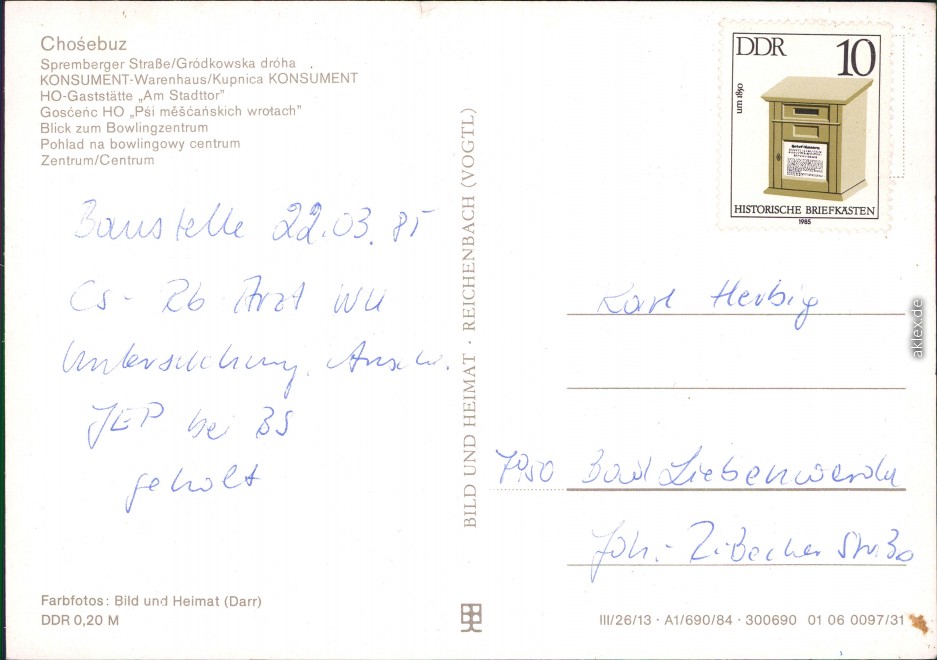 Chośebuz
Spremberger Straße/Gródkowska dróha
KONSUMENT-Warenhaus/Kupnica KONSUMENT
HO-Gaststätte „Am Stadttor"
Gosćeńc HO „Pśi měšćańskich wrotach"
Blick zum Bowlingzentrum
Pohlad na bowlingowy centrum
Zentrum/Centrum
Baustelle 22.03.85
Cs - Rb Arzt WU
Untersuchung.
JEP bei BS
geholt
Farbfotos: Bild und Heimat (Darr)
DDR 0,20 M
BILD UND HEIMAT · REICHENBACH (VOGTL)
DDR 10
um 1850
Brief-Kasten
HISTORISCHE BRIEFKÄSTEN
1985
Karl Herbig
7950 Bad Liebenwerda
Joh.- Str. 30
III/26/13 · A1/690/84 · 300690 01 06 0097/31
aklex.de